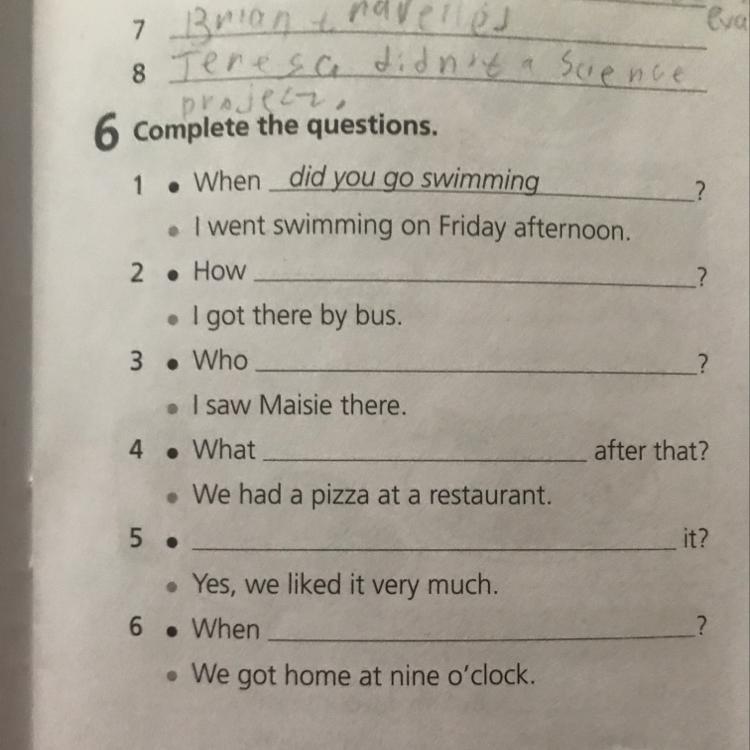 eva
7 Brian travelled
8 Teresa didn't a science
project.
6 Complete the questions.
1 • When did you go swimming ?
• I went swimming on Friday afternoon.
2 • How ?
• I got there by bus.
3 • Who ?
• I saw Maisie there.
4 • What after that?
• We had a pizza at a restaurant.
5 • it?
• Yes, we liked it very much.
6 • When ?
• We got home at nine o'clock.